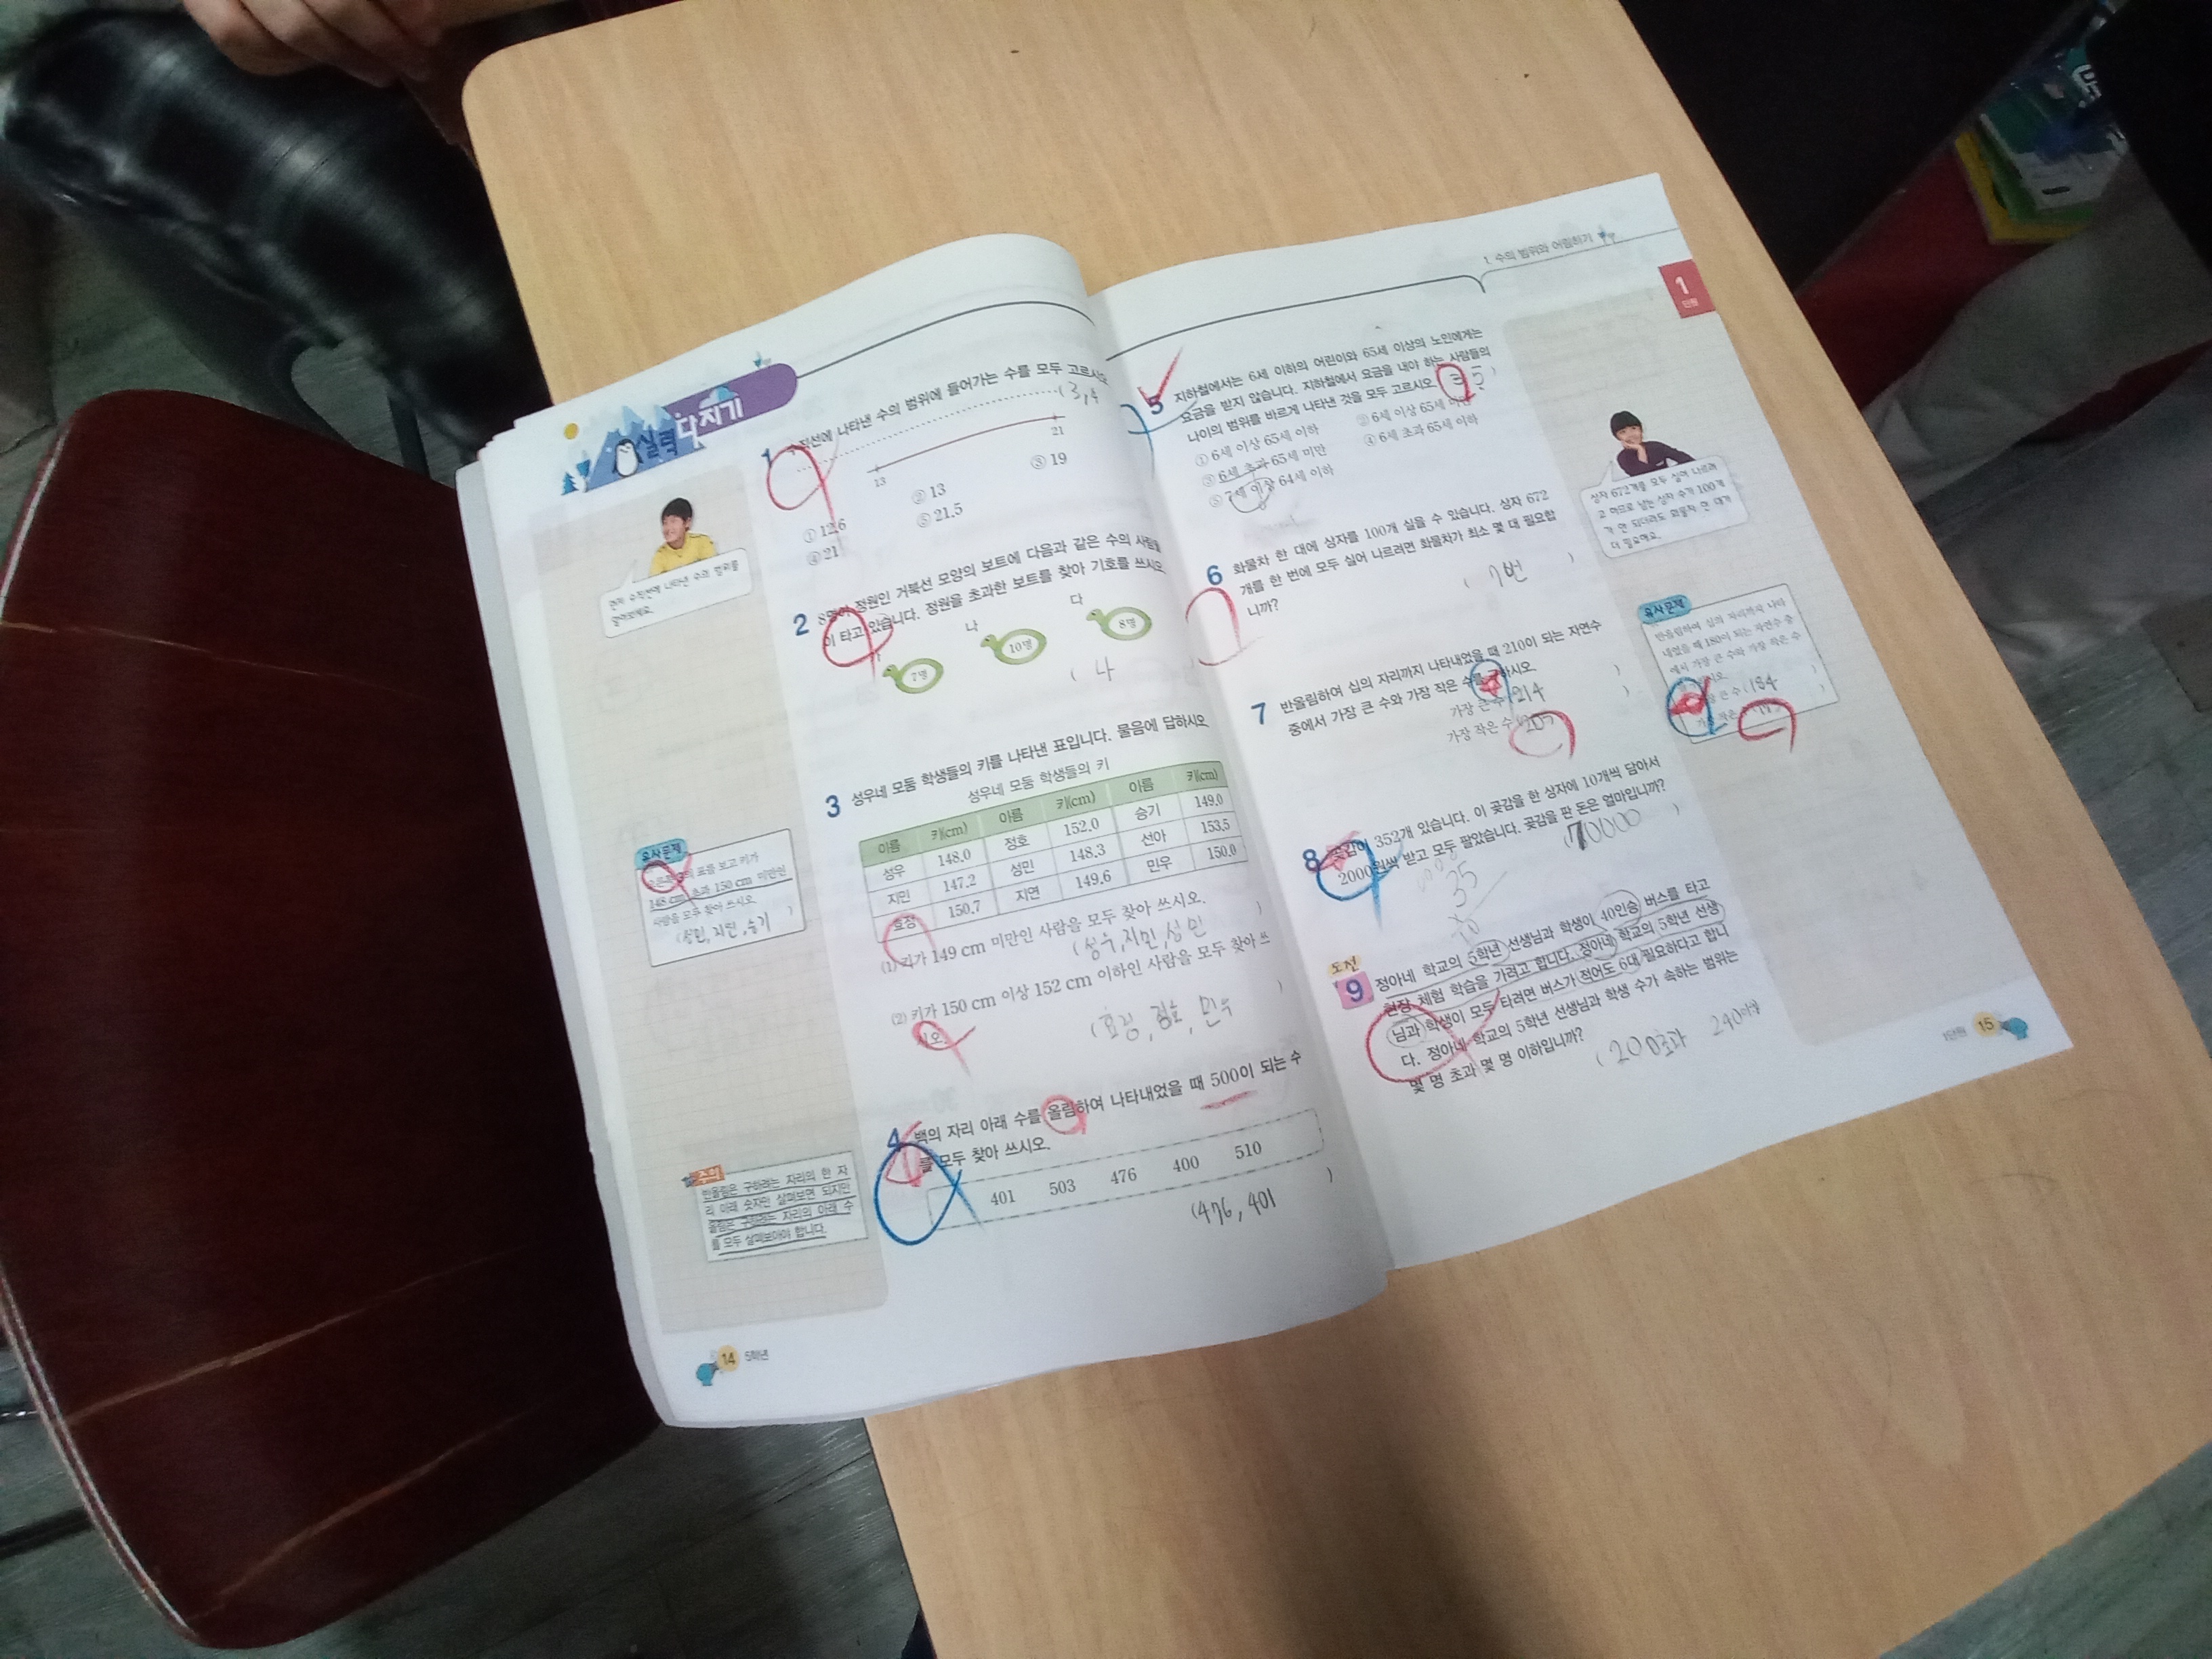 실력 다지기
1 직선에 나타낸 수의 범위에 들어가는 수를 모두 고르시오
(3, 4
13 21
① 12.6 ② 13 ③ 19
④ 21 ⑤ 21.5
먼저 수직선에 나타낸 수의 범위를
알아보세요.
2 8명이 정원인 거북선 모양의 보트에 다음과 같은 수의 사람들
이 타고 있습니다. 정원을 초과한 보트를 찾아 기호를 쓰시오
가 나 다
7명 10명 8명
( 나
3 성우네 모둠 학생들의 키를 나타낸 표입니다. 물음에 답하시오
성우네 모둠 학생들의 키
이름 키(cm) 이름 키(cm) 이름 키(cm)
성우 148.0 정호 152.0 승기 149.0
지민 147.2 성민 148.3 선아 153.5
효정 150.7 지연 149.6 민우 150.0
(1) 키가 149 cm 미만인 사람을 모두 찾아 쓰시오.
(성우, 지민, 성민 )
(2) 키가 150 cm 이상 152 cm 이하인 사람을 모두 찾아 쓰
시오.
(효정, 정호, 민우 )
유사문제
표를 보고 키가
148 cm 초과 150 cm 미만인
사람을 모두 찾아 쓰시오
(성민, 지연, 승기 )
4 백의 자리 아래 수를 올림하여 나타내었을 때 500이 되는 수
를 모두 찾아 쓰시오.
401 503 476 400 510
(476, 401 )
주의
반올림은 구하려는 자리의 한 자
리 아래 숫자만 살펴보면 되지만
올림은 구하려는 자리의 아래 수
를 모두 살펴보아야 합니다.
14 5학년
1. 수의 범위와 어림하기
1
단원
5 지하철에서는 6세 이하의 어린이와 65세 이상의 노인에게는
요금을 받지 않습니다. 지하철에서 요금을 내야 하는 사람들의
나이의 범위를 바르게 나타낸 것을 모두 고르시오.
① 6세 이상 65세 이하 ② 6세 이상 65세 미만
③ 6세 초과 65세 미만 ④ 6세 초과 65세 이하
⑤ 7세 이상 64세 이하
6 화물차 한 대에 상자를 100개 실을 수 있습니다. 상자 672
개를 한 번에 모두 실어 나르려면 화물차가 최소 몇 대 필요합
니까?
( 7번 )
상자 672개를 모두 실어 나르려
고 하므로 남는 상자 수가 100개
가 안 되더라도 화물차 한 대가
더 필요해요.
7 반올림하여 십의 자리까지 나타내었을 때 210이 되는 자연수
중에서 가장 큰 수와 가장 작은 수를 구하시오.
가장 큰 수 (214 )
가장 작은 수 (205 )
유사문제
반올림하여 십의 자리까지 나타
내었을 때 180이 되는 자연수 중
에서 가장 큰 수와 가장 작은 수
큰 수 (184 )
가장 작은
8 곶감이 352개 있습니다. 이 곶감을 한 상자에 10개씩 담아서
2000원씩 받고 모두 팔았습니다. 곶감을 판 돈은 얼마입니까?
(70000 )
35
70
도전
9 정아네 학교의 5학년 선생님과 학생이 40인승 버스를 타고
현장 체험 학습을 가려고 합니다. 정아네 학교의 5학년 선생
님과 학생이 모두 타려면 버스가 적어도 6대 필요하다고 합니
다. 정아네 학교의 5학년 선생님과 학생 수가 속하는 범위는
몇 명 초과 몇 명 이하입니까?
(200초과 240이하
1단원 15